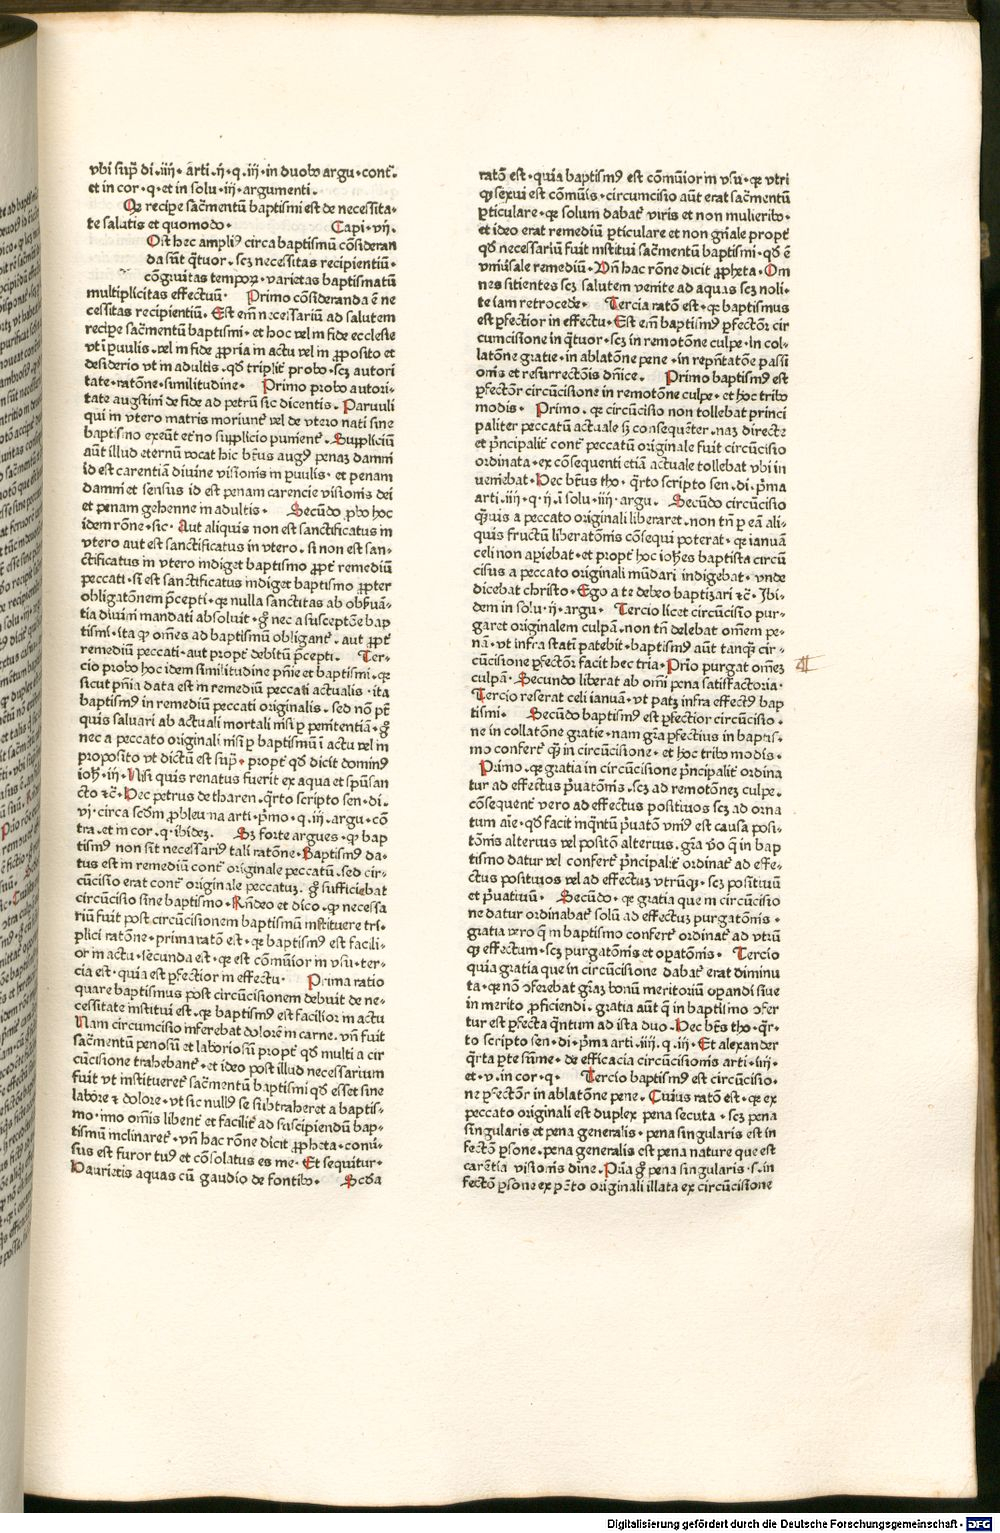 vbi sup̄ di·iiii· arti·ij·q·iii·in duobꝰ argu·cont̄·
et in cor·q·et in solu·iii·argumenti·
Qꝫ recipe sac̄mentū baptismi est de necessita·
te salutis et quomodo· Capi·vij·
Ost hec ampliꝰ circa baptismū cōsideran
da sūt q̄tuor·scꝫ necessitas recipientiū·
cōgruitas tempoꝝ·varietas baptismatū
multiplicitas effectuū· Primo cōsideranda ē ne
cessitas recipientiū·Est em̄ necessariū ad salutem
recipe sac̄mentū baptismi·et hoc vel in fide ecclesie
vt ī ꝑuulis·vel in fide ꝓpria in actu vel in ꝓposito et
desiderio vt in adultis·qd̄ triplit̄ probo·scꝫ autori
tate·ratōne·similitudine· Primo probo autori·
tate augstini de fide ad petrū sic dicentis·Paruuli
qui in vtero matris moriunt̄ vel de vtero nati sine
baptismo exeūt et no supplicio punient̄·Suppliciū
aūt illud eternū vocat hic bt̄us augꝰ penaꝫ damni
id est carentiā diuine visionis in ꝑuulis·et penam
damni et sensus id est penam carencie visionis dei
et penam gehenne in adultis· Secūdo ꝓbo hoc
idem rōne·sic·Aut aliquis non est sanctificatus in
vtero aut est sanctificatus in vtero·si non est san·
ctificatus in vtero indiget baptismo ꝓpt̄ remediū
peccati·si est sanctificatus indiget baptismo ꝓpter
obligatōnem p̄cepti·qꝛ nulla sanctitas ab obẜua·
tia diuini mandati absoluit·g̊ nec a susceptōe bap
tismi·ita qꝫ om̄es ad baptismū obligant̄·aut ꝓpt̄
remediū peccati·aut propt̄ debitū p̄cepti· Ter·
cio probo hoc idem similitudine pn̄ie et baptismi·qꝛ
sicut pn̄ia data est in remediū peccati actualis·ita
baptismꝰ in remediū peccati originalis·sed nō pt̄
quis saluari ab actuali mortali nisi ꝑ penitentiā·g̊
nec a peccato originali nisi ꝑ baptismū ī actu vel in
proposito vt dictū est sup̄·propt̄ qd̄ dicit dominꝰ
ioh̄·iii·Nisi quis renatus fuerit ex aqua et spūsan
cto ⁊c̄·Hec petrus de tharen·q̄rto scripto sen·di·
vj·circa scd̄m ꝓbleuma arti·p̄mo·q·iii·argu·cō
tra·et in cor·q·ibideꝫ· Sꝫ forte argues·qꝫ bap
tismꝰ non sit necessariꝰ tali ratōne·Baptismꝰ da·
tus est in remediū cont̄ originale peccatū·sed cir·
cūcisio erat cont̄ originale peccatuꝫ·g̊ sufficiebat
circūcisio sine baptismo·Rn̄deo et dico·qꝫ necessa
riū fuit post circūcisionem baptismū instituere tri·
plici ratōne·prima ratō est·qꝛ baptismꝰ est facili·
or in actu·secunda est·qꝛ est cōmūior in vsu·ter·
cia est·quia est ꝑfectior in effectu· Prima ratio
quare baptismus post circūcisionem debuit de ne·
cessitate institui est·qꝛ baptismꝰ est facilior in actu
Nam circumcisio inferebat dolorē in carne·vn̄ fuit
sac̄mentū penosū et laboriosū propt̄ qd̄ multi a cir
cūcisione trahebant̄·et ideo post illud necessarium
fuit vt institueret̄ sac̄mentū baptismi qd̄ esset sine
labore ⁊ dolore·vt sic nullꝰ se subtraheret a baptis·
mo·imo om̄is libent̄ et facilit̄ ad suscipiendū bap·
tismū inclinaret̄·vn̄ hac rōne dicit ꝓpheta·conū·
sus est furor tuꝰ et cōsolatus es me·Et sequitur·
Haurietis aquas cū gaudio de fontibꝰ· Scd̄a
ratō est·quia baptismꝰ est cōmūior in vsu·qꝛ vtri
qꝫ sexui est cōmūis·circumcisio aūt erat sac̄mentū
ꝑticulare·qꝛ solum dabat̄ viris et non mulieribꝰ·
et ideo erat remediū ꝑticulare et non gn̄ale propt̄
qd̄ necessariū fuit institui sac̄mentū baptismi·qd̄ ē
vniūsale remediū·Vn̄ hac rōne dicit ꝓpheta·Om
nes sitientes scꝫ salutem venite ad aquas scꝫ noli·
te iam retrocede· Tercia ratō est·qꝛ baptismus
est ꝑfectior in effectu·Est em̄ baptismꝰ ꝑfectoꝛ cir
cumcisione in q̄tuor·scꝫ in remotōne culpe·in col·
latōne gratie·in ablatōne pene·in repn̄tatōe passi
onis et resurrectōis dn̄ice· Primo baptismꝰ est
ꝑfectōr circūcisione in remotōne culpe·et hoc tribꝰ
modis· Primo·qꝛ circūcisio non tollebat princi
paliter peccatū actuale sꝫ consequēter·naꝫ directe
et p̄ncipalit̄ cont̄ peccatū originale fuit circūcisio
ordinata·ex cōsequenti etiā actuale tollebat vbi in
ueniebat·Hec bt̄us tho·q̄rto scripto sen·di·p̄ma
arti·iiii·q·ij·ī solu·iiii·argu· Secūdo circūcisio
q̄uis a peccato originali liberaret·non tn̄ ꝑ eā ali·
quis fructū liberatōnis cōsequi poterat·qꝛ ianuā
celi non aꝑiebat·et propt̄ hoc ioh̄es baptista circū
cisus a peccato originali mūdari indigebat·vnde
dicebat christo·Ego a te debeo baptizari ⁊c̄·Ibi·
dem in solu·ij·argu· Tercio licet circūcisio pur·
garet originalem culpā·non tn̄ delebat om̄em pe·
nā·vt infra stati patebit·baptismꝰ aūt tanqꝫ cir·
cūcisione ꝑfectōr facit hec tria·Prīo purgat om̄eꝫ
culpā·Secundo liberat ab om̄i pena satisfactoria·
Tercio reserat celi ianuā·vt patꝫ infra effectꝰ bap
tismi· Secūdo baptismꝰ est ꝑfectior circūcisio·
ne in collatōne gratie·nam gr̄a ꝑfectius in baptis·
mo confert̄ q̄ in circūcisione·et hoc tribꝰ modis·
Primo·qꝛ gratia in circūcisione p̄ncipalit̄ ordina
tur ad effectus p̄uatōnis·scꝫ ad remotōneꝫ culpe·
cōsequent̄ vero ad effectus positiuos scꝫ ad orna
tum aīe·qd̄ facit inqn̄tū p̄uatō vniꝰ est causa posi·
tōnis alterius vel positō alterius·gr̄a v̊o q̄ in bap
tismo datur vel confert̄ p̄ncipalit̄ ordinat̄ ad effe·
ctus positiuos vel ad effectuꝫ vtrūqꝫ·scꝫ positiuū
et p̄uatiuū· Secūdo·qꝛ gratia que in circūcisio
ne datur ordinabat̄ solū ad effectuꝫ purgatōnis·
gratia vero q̄ in baptismo confert̄ ordinat̄ ad vtrū
qꝫ effectum·scꝫ purgatōnis et oꝑatōnis· Tercio
quia gratia que in circūcisione dabat̄ erat diminu
ta·qꝛ nō ↄferebat gr̄aꝫ bonū meritoriū oꝑandi siue
in merito ꝓficiendi·gratia aūt q̄ in baptismo ↄfer
tur est ꝑfecta qn̄tum ad ista duo·Hec bt̄s tho·qr̄·
to scripto sen·di·p̄ma arti·iiii·q·iii·Et alexander
q̄rta ꝑte sūme·de efficacia circūcisionis arti·iiii·
et·v·in cor·q· Tercio baptismꝰ est circūcisio·
ne ꝑfectōr in ablatōne pene·Cuius ratō est·qꝛ ex
peccato originali est duplex pena secuta·scꝫ pena
singularis et pena generalis·pena singularis est in
fectō ꝑsone·pena generalis est pena nature que est
carētia visionis diīne·Pūa g̊ pena singularis·s·in
fectō ꝑsone ex pc̄to originali illata ex circūcisione
Digitalisierung gefördert durch die Deutsche Forschungsgemeinschaft - DFG